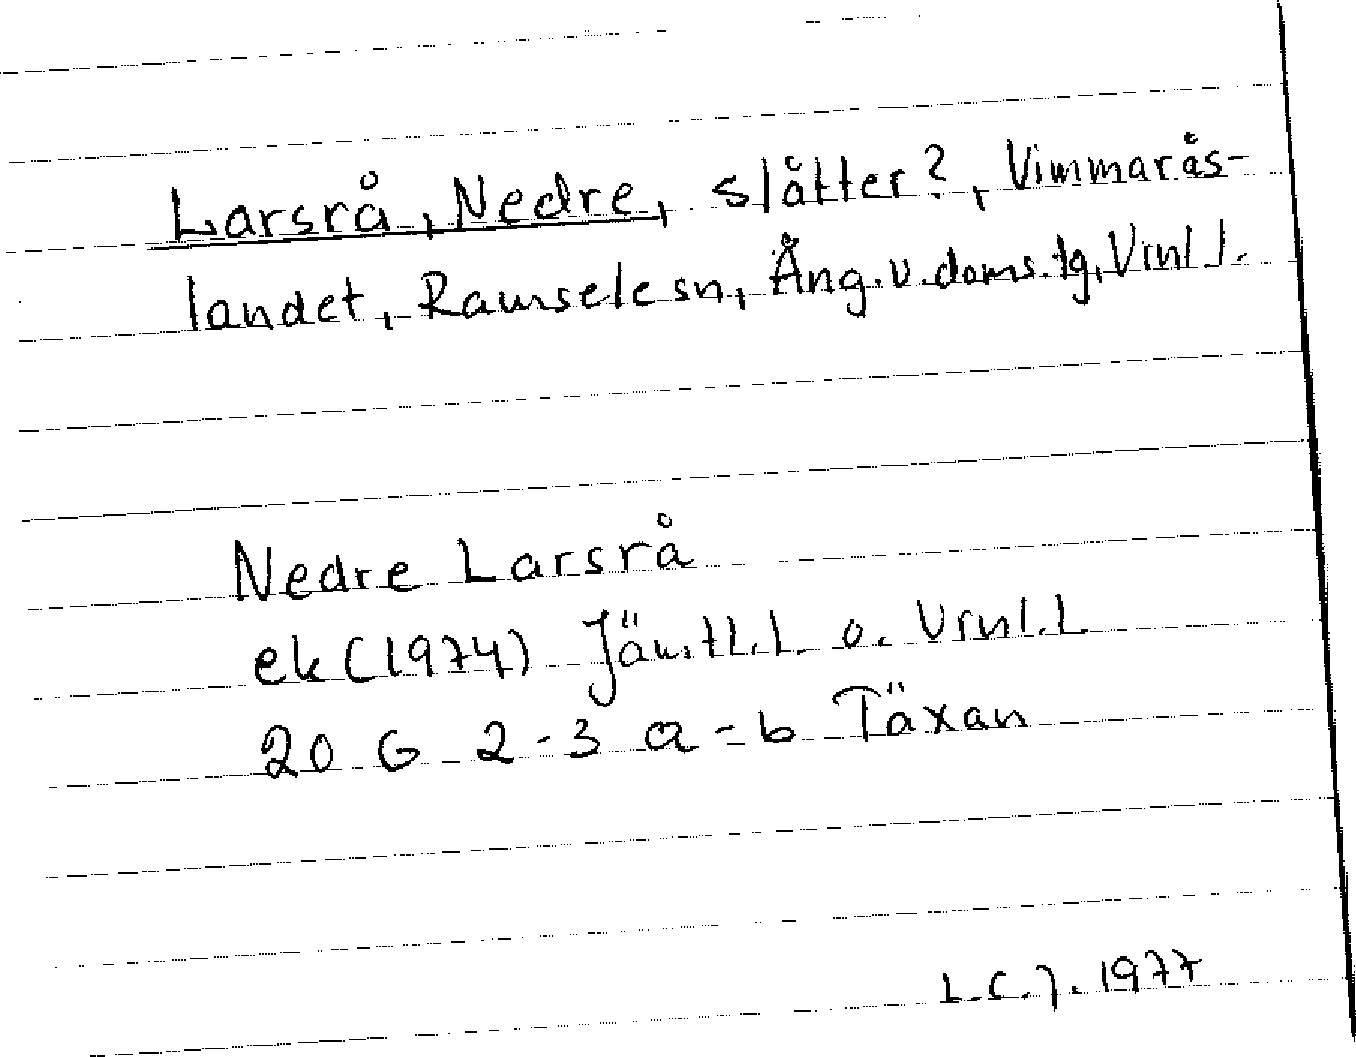 Larsrå, Nedre, slåtter?, Vimmarås-
landet, Ramsele sn, Ång. v. doms. tg, Vnl l.
Nedre Larsrå
ek (1974) Jämtl. L. o. Vrnl. L
20 G 2-3 a-b Täxan
L.C.J. 1977